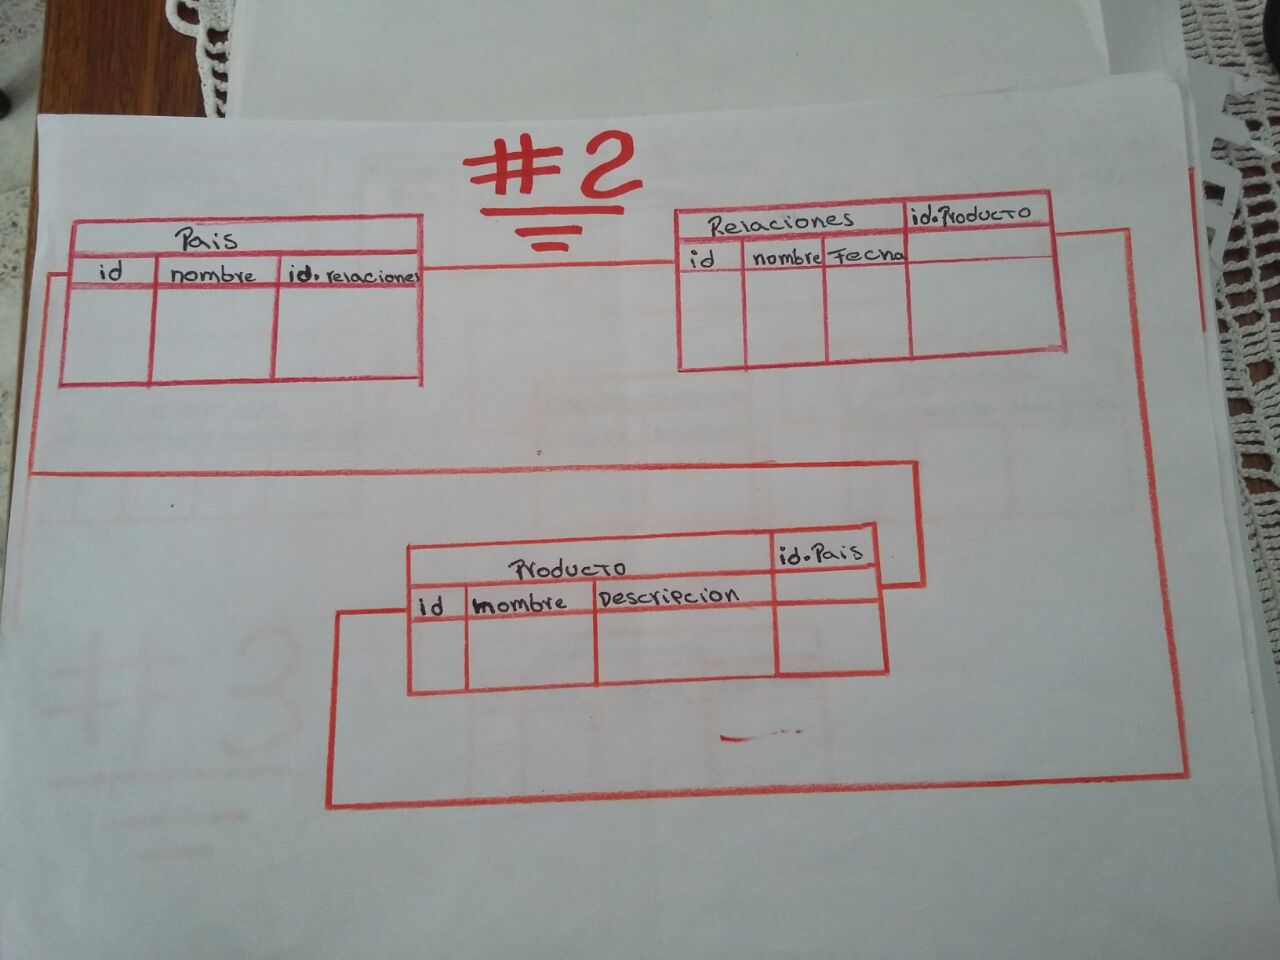 #2
Pais
id nombre id.relaciones
Relaciones id.Producto
id nombre Fecha
Producto id.Pais
id mombre Descripcion